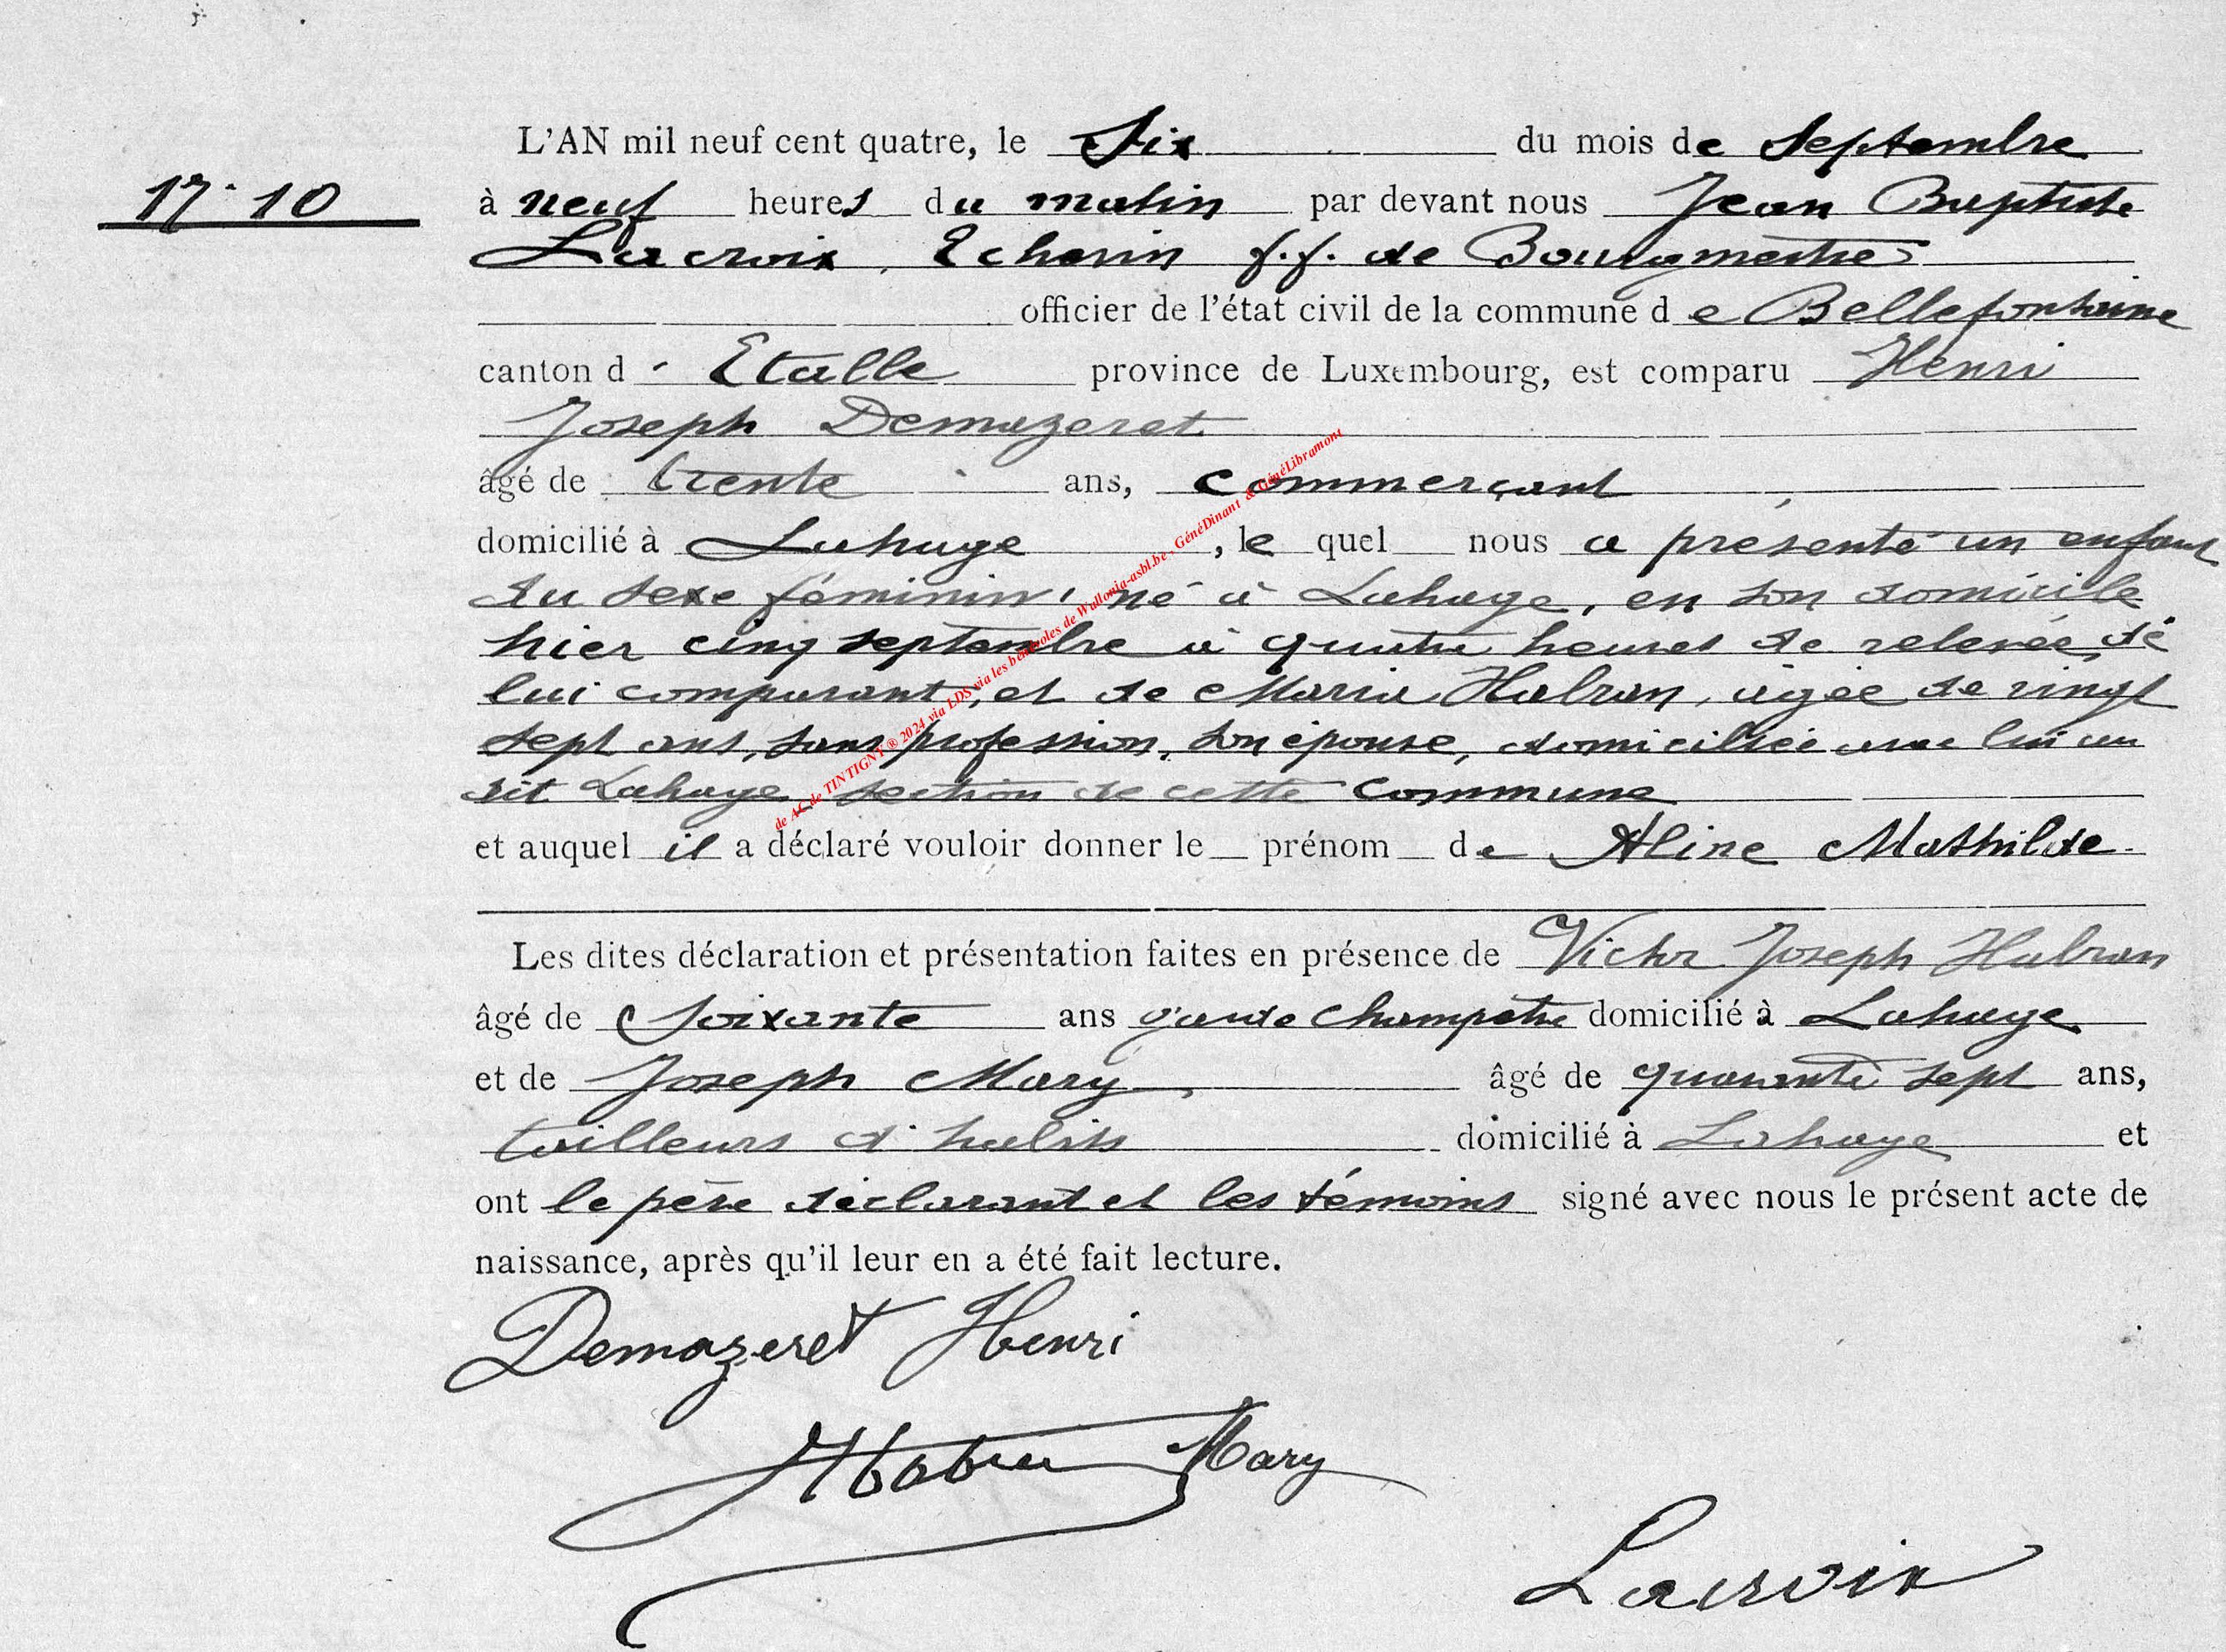 L'AN mil neuf cent quatre, le Six du mois de Septembre
17. 10
à neuf heures du matin par devant nous Jean Baptiste
Lacroix, Echevin f.f. de Bourgmestre
officier de l'état civil de la commune de Bellefontaine
canton d' Etalle province de Luxembourg, est comparu Henri
Joseph Demazeret
âgé de trente ans, commerçant
domicilié à Lahage, le quel nous a présenté un enfant
du sexe féminin, né à Lahage, en son domicile
hier cinq septembre à quatre heures de relevée, de
lui comparant, et de Maria Habran, âgée de vingt
sept ans, sans profession, son épouse, domiciliée avec lui au
dit Lahage section de cette commune
et auquel il a déclaré vouloir donner le prénom de Aline Mathilde.
Les dites déclaration et présentation faites en présence de Victor Joseph Habran
âgé de Soixante ans garde champêtre domicilié à Lahage
et de Joseph Mary âgé de quarante sept ans,
tailleurs d'habits domicilié à Lahage et
ont le père déclarant et les témoins signé avec nous le présent acte de
naissance, après qu'il leur en a été fait lecture.
Demazeret Henri
Mary
Lacroix
de AC de TINTIGNY ® 2024 via LDS via les bénévoles de Wallonia-asbl.be, GénéDinant & GénéLibramont